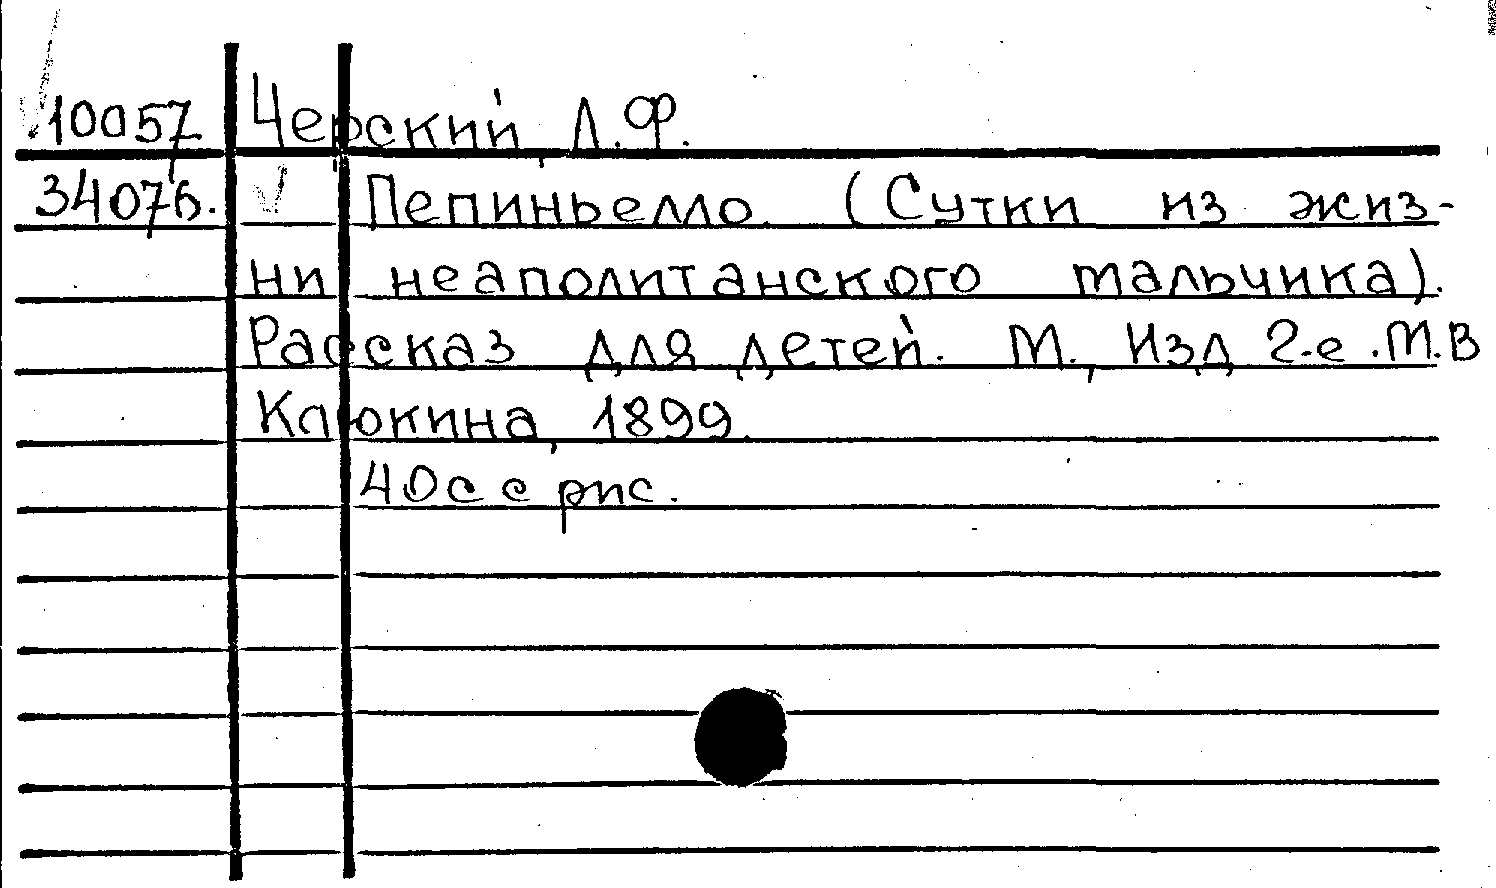 10057 Черский, Л.Ф.
34076. Пепиньелло (Сутки из жиз-
ни неаполитанского мальчика).
Рассказ для детей. М., Изд 2-е. М.В
Клюкина, 1899.
40с с рис.